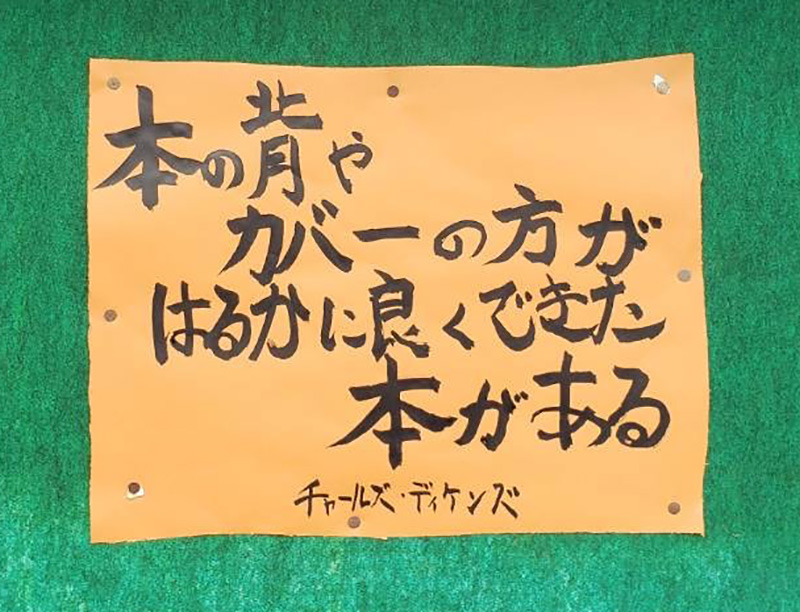 本の背や
カバーの方が
はるかに良くできた
本がある
チャールズ・ディケンズ